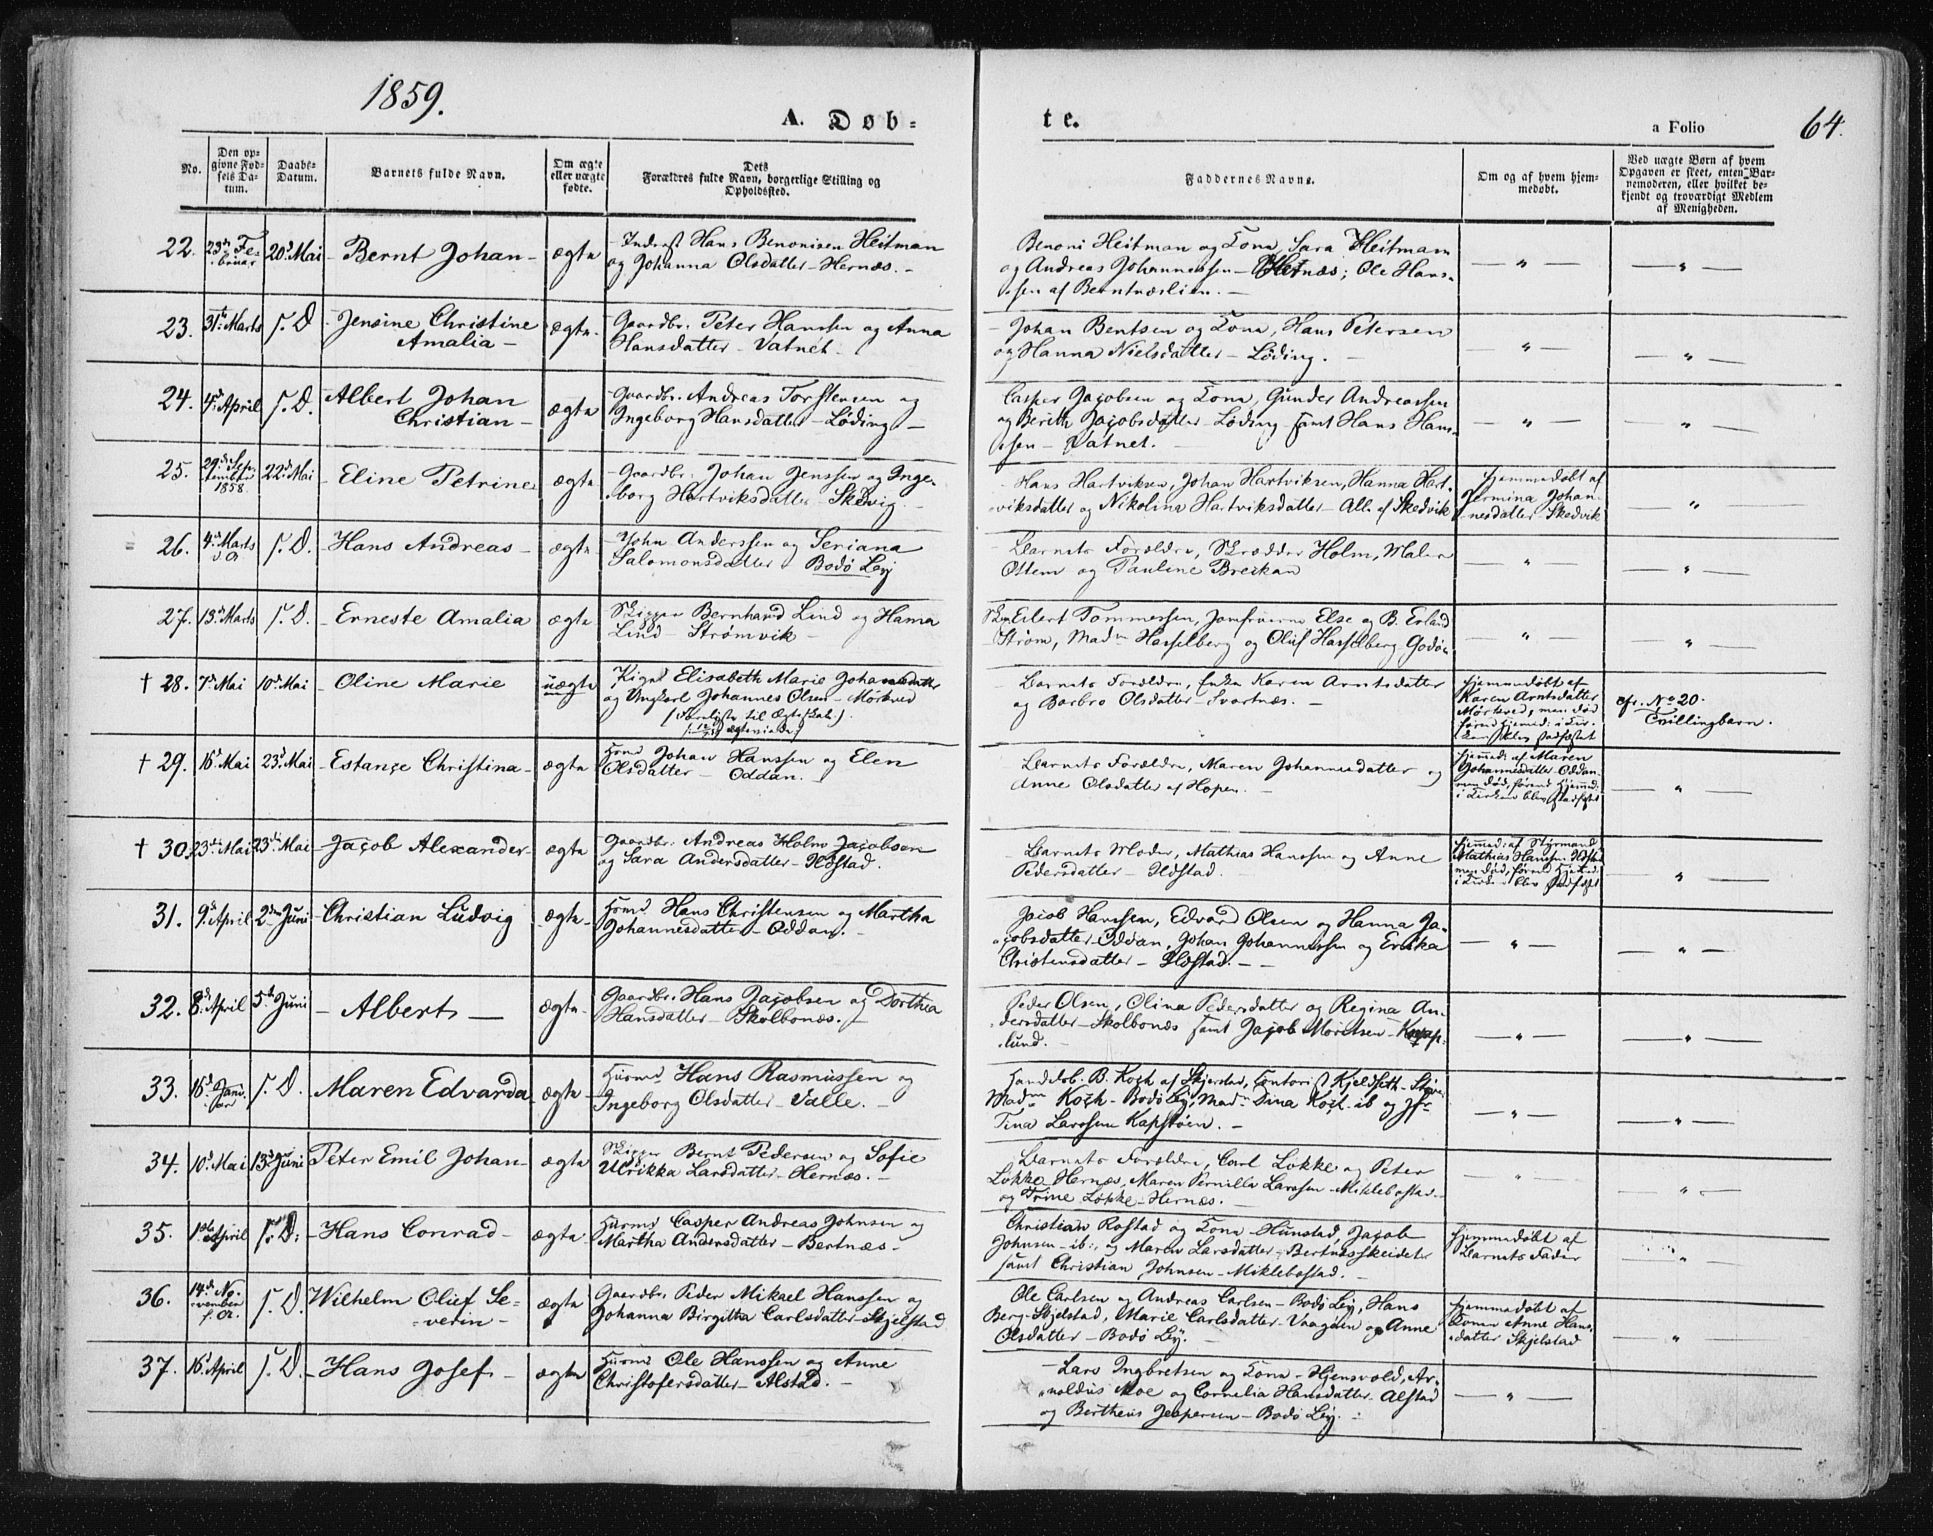 1859.
A. Døb-
te.
a Folio
64.
No.
Den opgivne Fødsels Datum.
Daabs-Datum.
Barnets fulde Navn.
Om ægte eller uægte fødte.
Dets Forældres fulde Navn, borgerlige Stilling og Opholdssted.
Faddernes Navne.
Om og af hvem hjemmedøbt.
Ved uægte Børn af hvem Opgaven er skeet, enten Barnemoderen, eller hvilket bekjendt og troværdigt Medlem af Menigheden.
22. 23d Februar 20d Mai - Bernt Johan - ægte
- Inderst Hans Benonisen Heitman
og Johanna Olsdatter - Hernæs. -
Benoni Heitman og Kone, Sara Heitmann
og Andreas Johannessen - Hernæs; Ole Hans-
sen af Berntnæslien. -
— " —
— " —
23. 31te Marts s. D. - Jensine Christine
Amalia -
ægte -
Gaardbr. Peter Hanssen og Anna
Hansdatter - Vatnet. -
- Johan Bentsen og Kone, Hans Petersen
og Hanna Nielsdatter - Løding. -
" —
— " —
24. 4d April s. D. Albert Johan
Christian -
ægte
Gaardbr. Andreas Torstensen og
Ingeborg Hansdatter - Løding -
Casper Jacobsen og Kone, Gunder Andreassen
og Berith Jacobsdatter - Løding samt Hans Hans-
sen - Vatnet. -
— " —
— " —
25. 29de September 1858. 22d Mai - Eline Petrine ægte
Gaardbr. Johan Jenssen og Inge-
borg Hartviksdatter - Skedvig. -
- Hans Hartviksen, Johan Hartviksen, Hanna Hart-
viksdatter og Nikolina Hartviksdatter - Alle af Skedvik
Hjemmedøbt af
Jermina Johan-
nesdatter Skedvik
— " —
26. 4d Marts s. D. - Hans Andreas - ægte
- John Anderssen og Seriana
Salomonsdatter - Bodø Ley
- Barnets Forældre, Skrædder Holm, Maler
Ottem og Pauline Breikan
— " —
— " —
27. 13d Marts s. D. - Erneste Amalia ægte
Skipper Bernhard Lind og Hanna
Lind - Strømvik -
Eilert Tommessen, Jomfruerne Else og B. Erland
Strøm, Madm Hasselberg og Oluf Hasselberg Godø -
— " —
— " —
† 28. 7d Mai 10d Mai - Oline Marie uægte
- Pigen Elisabeth Marie Johannesdatter
og Ungkarl Johannes Olsen - Mørkved
- Barnets Forældre, Enke Karen Arntsdatter
og Barbro Olsdatter - Svartnæs. -
Hjemmedøbt af
Karen Arntsdatter
Mørkved, men død
førend Hjemmed: i Kir-
ken blev stadfæstet
cfr. No 20.
Tvillingbarn.
† 29. 16d Mai 23d Mai - Estance Christina - ægte
Huusmd Johan Hanssen og Elen
Olsdatter - Oddan. -
- Barnets Forældre, Maren Johannesdatter og
Anne Olsdatter af Hopen. -
Hjemmed: af Maren
Johannesdatter Oddan
men død, førend Hjemmed:
i Kirken blev stadfæstet
— " —
† 30. 23de Mai 23de Mai - Jacob Alexander - ægte
Gaardbr. Andreas Holm Jacobsen
og Sara Andersdatter - Ilstad.
- Barnets Moder, Mathias Hanssen og Anne
Pedersdatter - Ilstad. -
Hjemmed: af Styrmand
Mathias Hanssen Ilstad
men død, førend Hjemmed:
i Kirken blev stadfæstet
— " —
31. 9de April 2den Juni - Christian Ludvig ægte -
Huusmd Hans Christensen og Martha
Johannesdatter - Oddan. -
Jacob Hanssen, Edvard Olsen og Hanna Ja-
cobsdatter - Oddan, Johan Johannessen og Ericka
Christensdatter - Ilstad. - -
— " —
— " —
32. 8d April 5te Juni - Albert - ægte -
Gaardbr. Hans Jacobsen og Dorthea
Hansdatter - Skolbonæs. -
Peder Olsen, Olina Pedersdatter og Regina An-
dersdatter - Skolbonæs samt Jacob Moretsen - Knap-
lund. -
— " —
— " —
33. 16d Januar s. D. - Maren Edvarda ægte -
Huusmd Hans Rasmussen og
Ingeborg Olsdatter - Valle. -
Handelsb. B. Koch af Skjerstad, Contorist Kjeldseth -
Madm Koch - Bodø Ley, Madm Sina Koch ib og Jfr
Tina Larssen Kapstøen. -
— " —
— " —
34. 10d Mai 13d Juni Peter Emil Johan - ægte
Skipper Bernt Pedersen og Sofie
Ulrikka Larsdatter - Hernæs. -
- Barnets Forældre, Carl Løkke og Peter
Løkke - Hernæs, Maren Pernilla Larssen - Miklebostad -
og Trine Løkke - Hernæs. -
— " —
— " —
35. 1ste April s. D: - Hans Conrad - ægte -
Huusmd Casper Andreas Johnsen og
Martha Andersdatter - Bertnæs. -
Christian Rostad og Kone - Hunstad, Jacob
Johnsen - ib:, og Maren Larsdatter - Bertnæsskeidet
samt Christian Johnsen - Miklebostad. -
Hjemmedøbt af
Barnets Fader
— " —
36. 14de November f. A. s. D. Wilhelm Oluf Se-
verin -
ægte
Gaardbr. Peder Mikael Hanssen og
Johanna Birgitha Carlsdatter - Skjelstad
Ole Carlsen og Andreas Carlsen - Bodø Ley, Hans
Berg - Skjelstad, Marie Carlsdatter - Vaagøen og Anne
Olsdatter - Bodø Ley. -
Hjemmedøbt af
Konen Anne Hans-
datter Skjelstad
— " —
37. 16d April s. D. - Hans Josef - ægte
Huusmd Ole Hanssen og Anne
Christofersdatter - Alstad. -
- Lars Ingbretsen og Kone - Hjensvold, Ar-
noldus Moe og Cornelia Hansdatter - Alstad
og Bertheus Jespersen - Bodø Ley. -
— " —